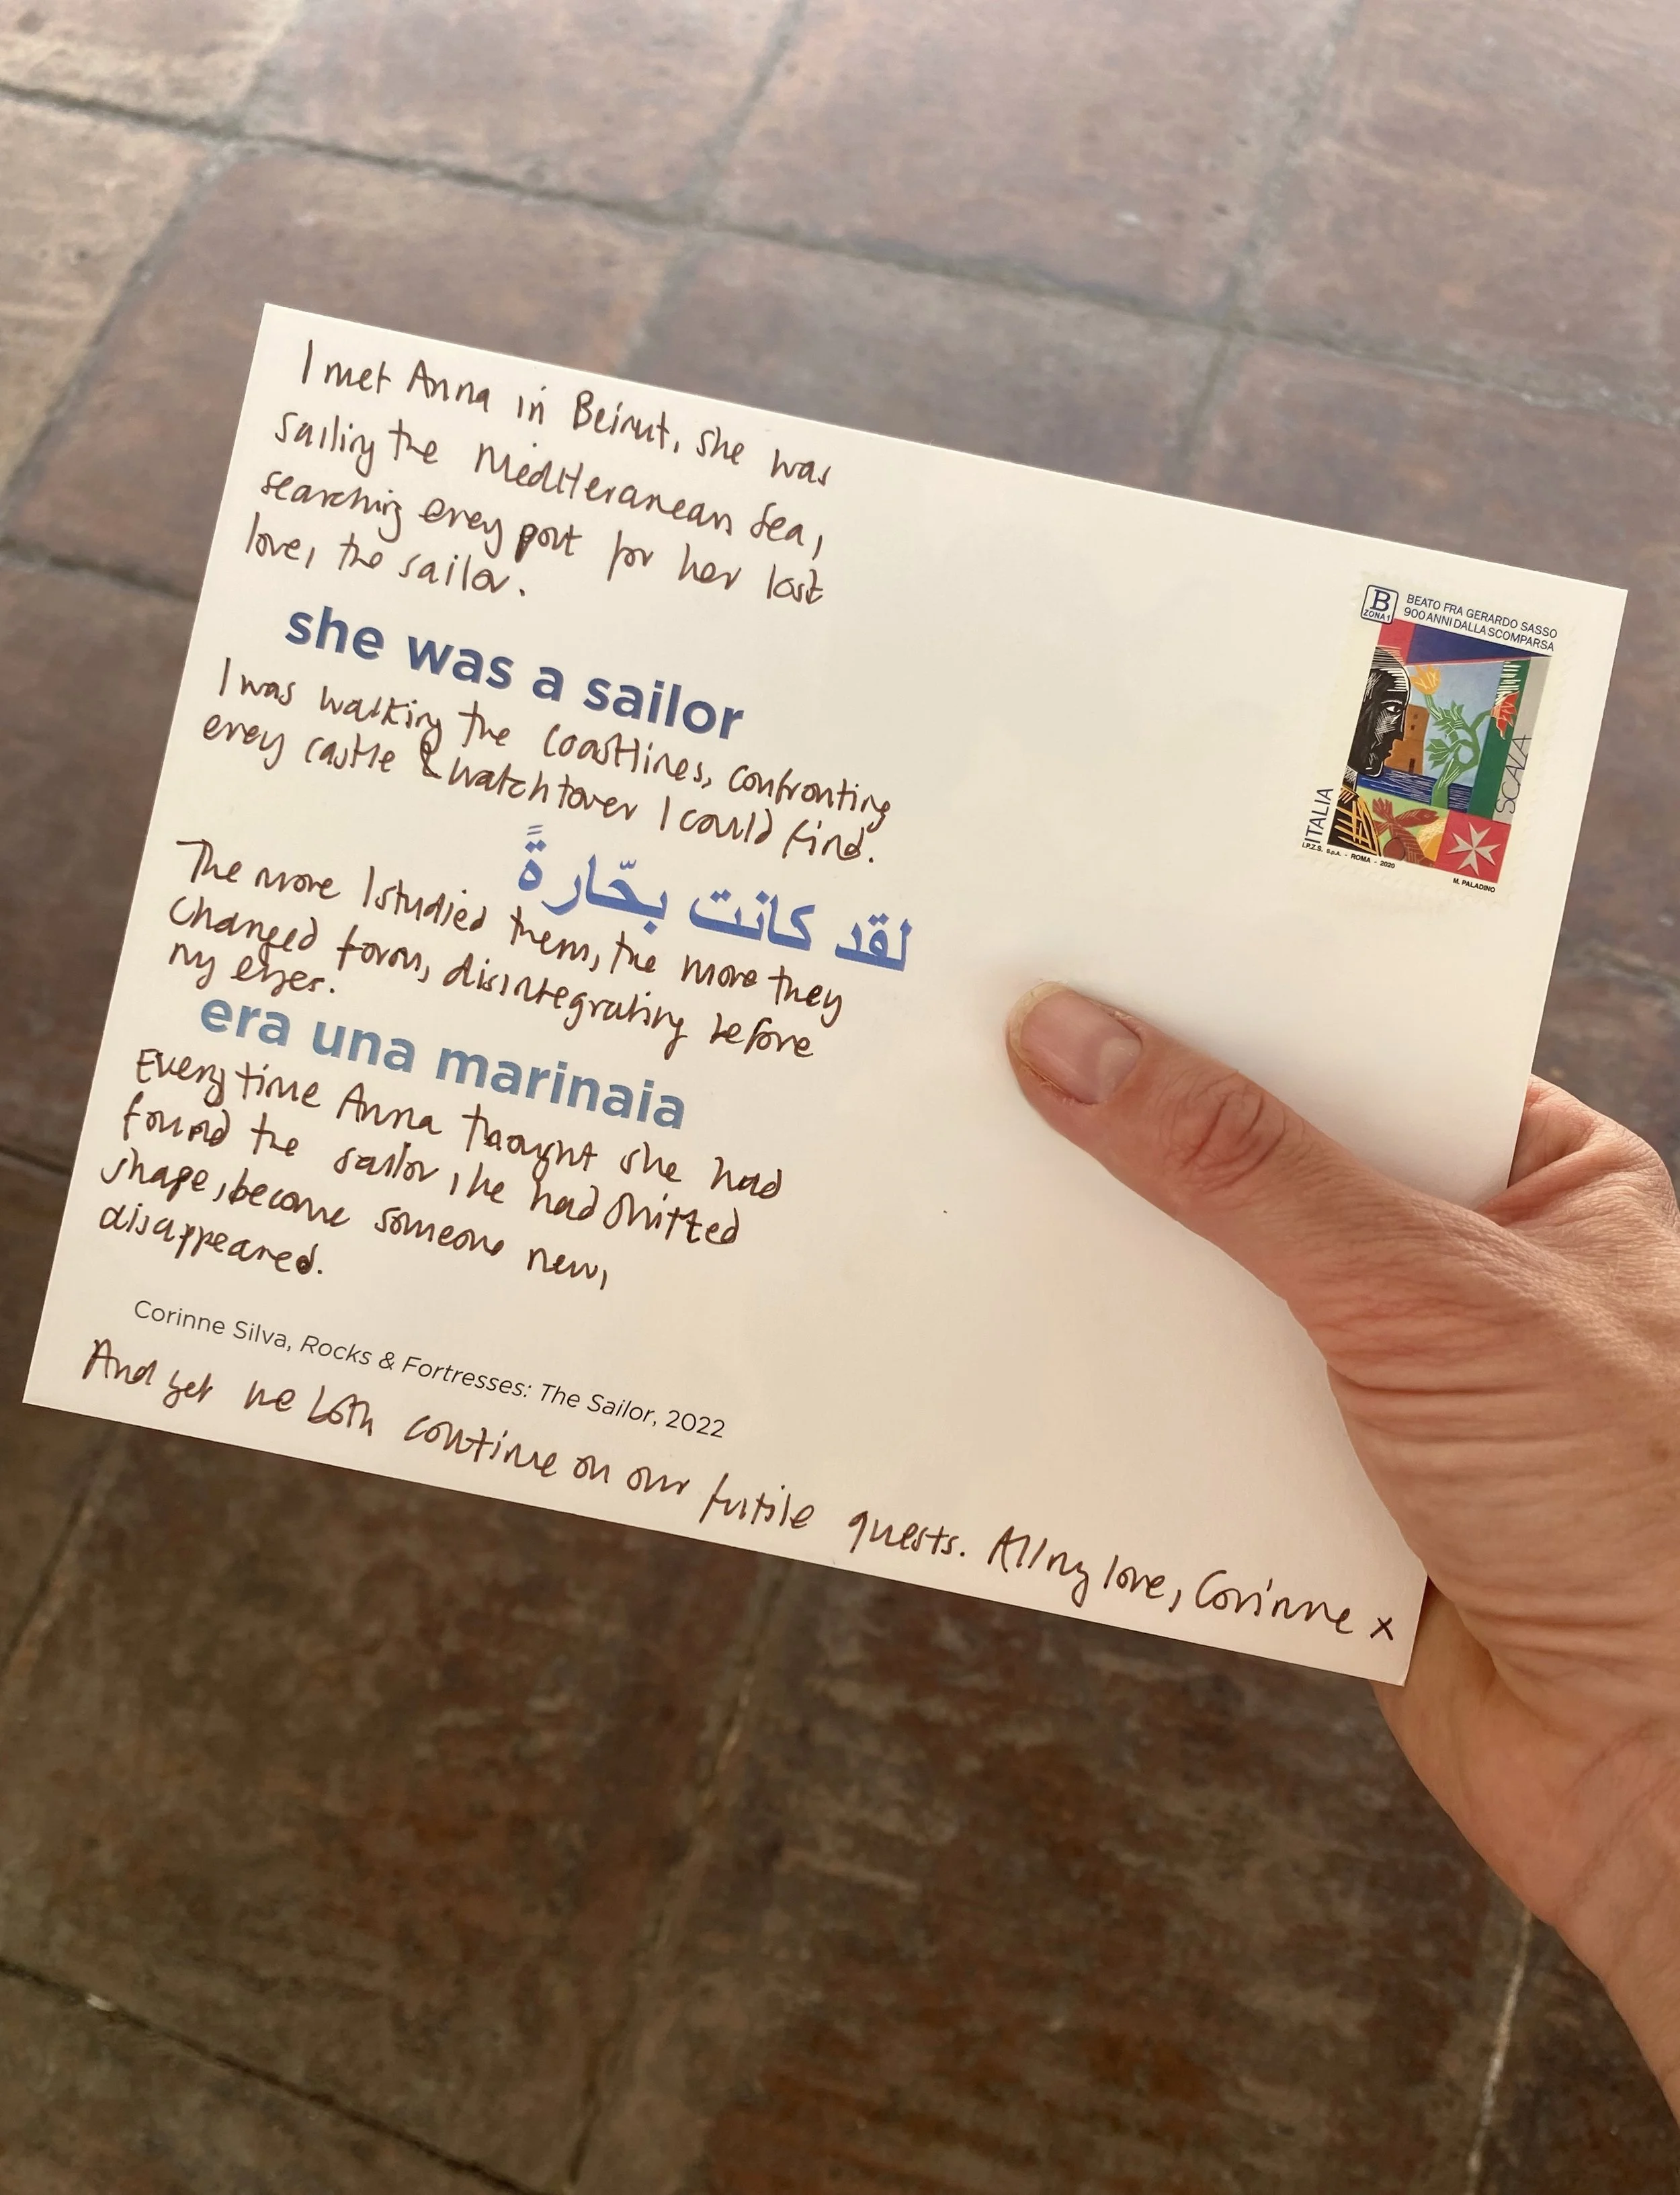 I met Anna in Beirut, she was
sailing the Mediteranean Sea,
searching every port for her lost
love, the sailor.
she was a sailor
I was walking the coastlines, confronting
every castle & watchtower I could find.
لقد كانت بحّارةً
The more I studied them, the more they
changed form, disintegrating before
my eyes.
era una marinaia
Every time Anna thought she had
found the sailor, he had shifted
shape, become someone new,
disappeared.
Corinne Silva, Rocks & Fortresses: The Sailor, 2022
And yet we both continue on our futile quests. All my love, Corinne x
B
ZONA 1
BEATO FRA GERARDO SASSO
900 ANNI DALLA SCOMPARSA
SCALA
ITALIA
I.P.Z.S. S.p.A. - ROMA - 2020
M. PALADINO